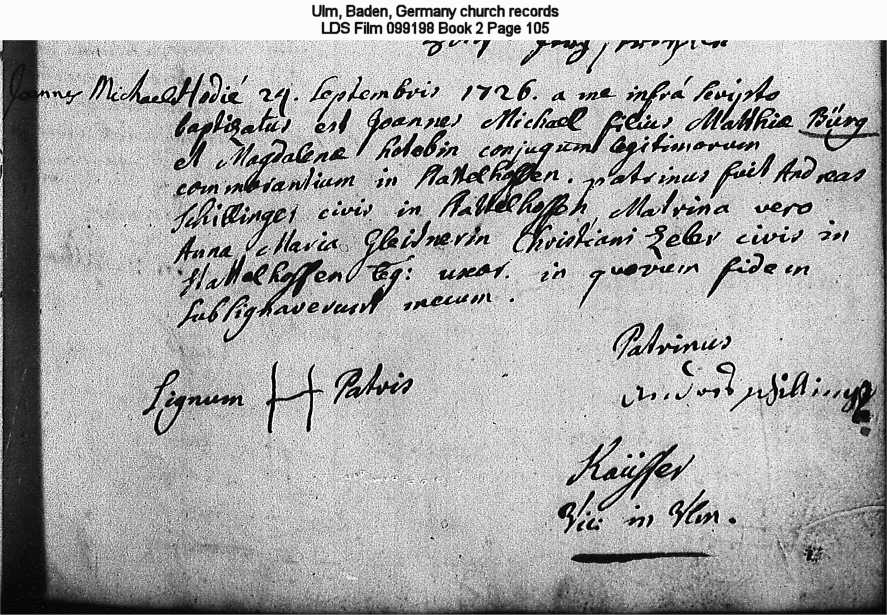 Ulm, Baden, Germany church records
LDS Film 099198 Book 2 Page 105
Joannes Michael Hodié 24. Septembris 1726. a me infrá scripto
baptizatus est Joannes Michael filius Matthiæ Bürg
et Magdalenæ hotobin conjugum legitimorum
commorantium in Stattelhoffen. patrinus fuit Andreas
Schillinger civis in Stattelhoffen, Matrina vero
Anna Maria Gleitnerin Christiani Zeler civis in
Stattelhoffen leg: uxor. in quorum fidem
subsignaverunt mecum.
Signum Patris
Patrinus
Kaüffer
Vic: in Ulm.